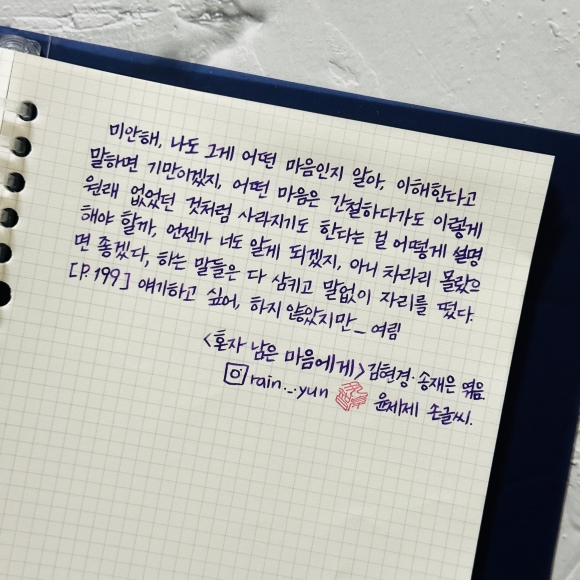 미안해, 나도 그게 어떤 마음인지 알아, 이해한다고
말하면 기만이겠지, 어떤 마음은 간절하다가도 이렇게
원래 없었던 것처럼 사라지기도 한다는 걸 어떻게 설명
해야 할까, 언젠가 너도 알게 되겠지, 아니 차라리 몰랐으
면 좋겠다, 하는 말들은 다 삼키고 말없이 자리를 떴다.
[P.199] 얘기하고 싶어, 하지 않았지만_ 여림
<혼자 남은 마음에게> 김현경·송재은 엮음.
rain._.yun 윤세제 손글씨.